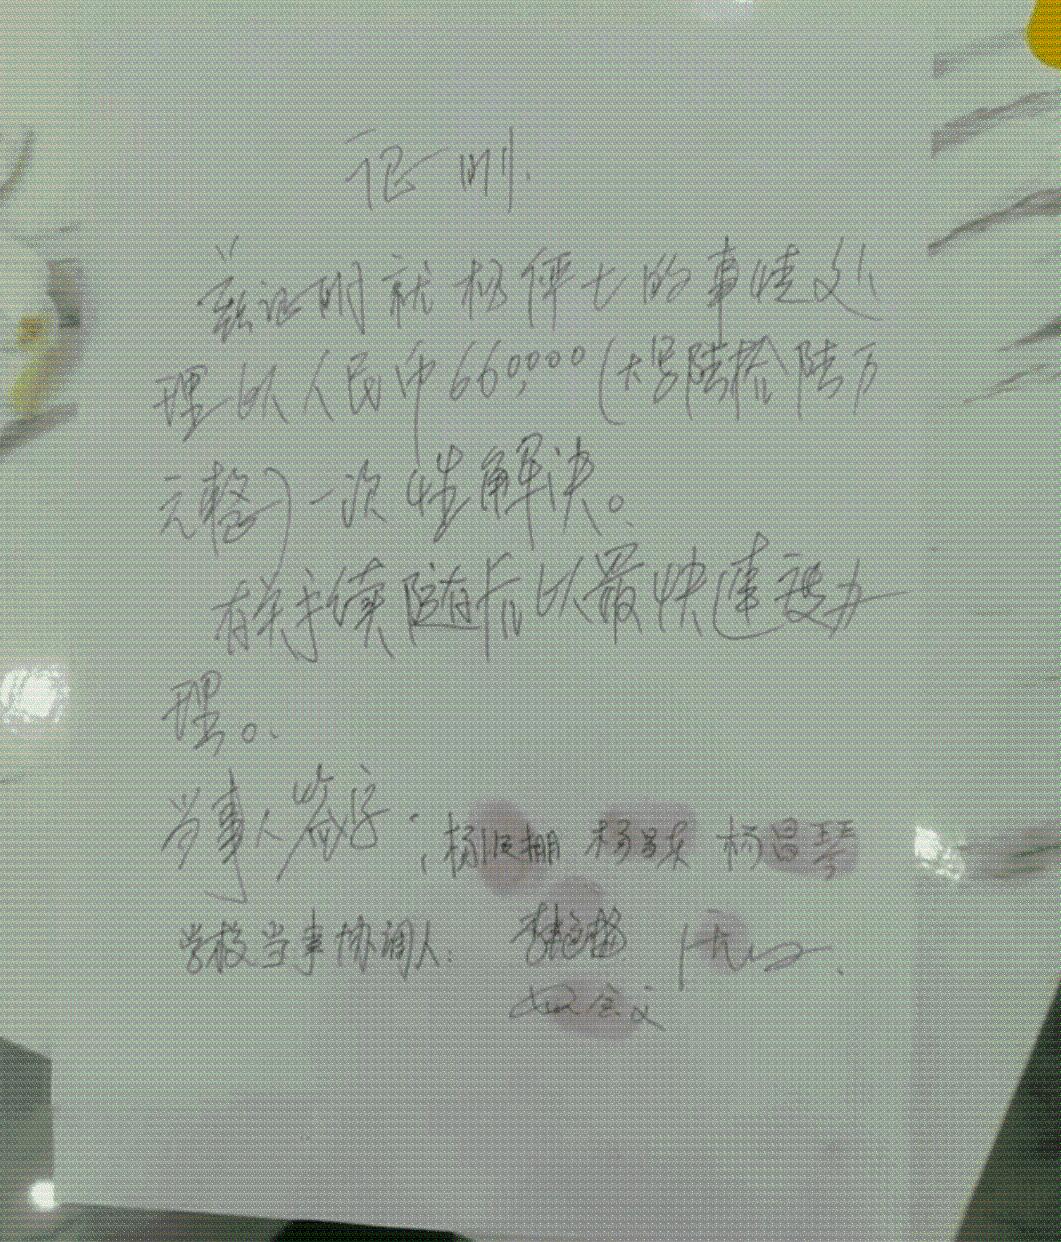 证明
兹证明就杨伊七的事情处
理以人民币660,000(大写陆拾陆万
元整)一次性解决。
有关手续随后以最快速度办
理。
当事人签字: 杨 杨昌 杨昌琴
学校当事协调人: